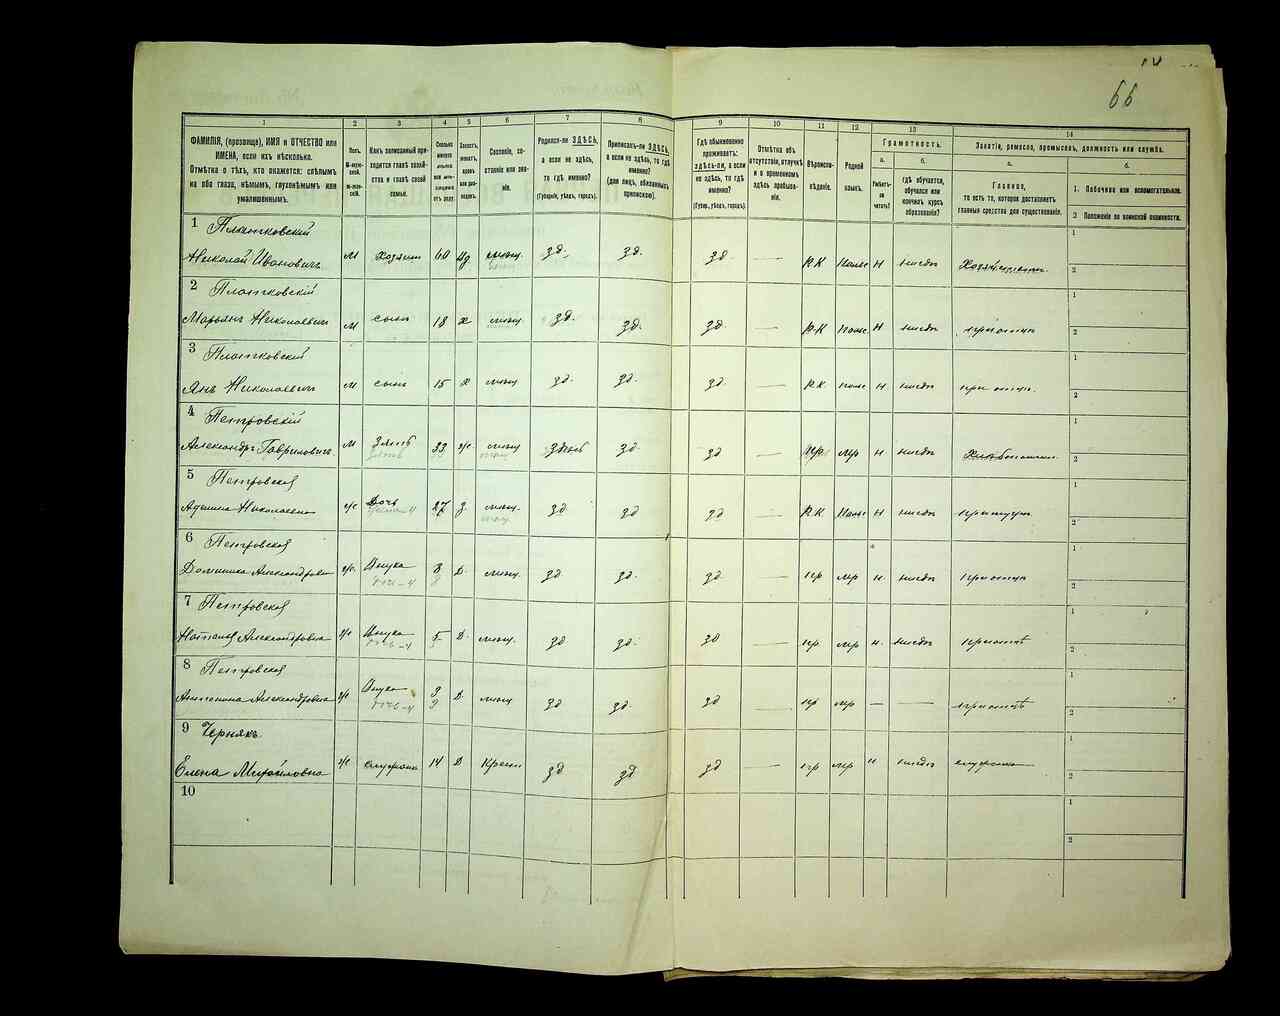 66
1 2 3 4 5 6 7 8 9 10 11 12 13 14
ФАМИЛІЯ, (прозвище), ИМЯ и ОТЧЕСТВО или
ИМЕНА, если ихъ нѣсколько.
Отмѣтка о тѣхъ, кто окажется: слѣпымъ
на оба глаза, нѣмымъ, глухонѣмымъ или
умалишеннымъ.
Полъ.
Какъ записанный при-
ходится главѣ хозяй-
ства и главѣ своей
семьи.
Сословіе, со-
стояніе или зва-
ніе.
Родился-ли ЗДѢСЬ,
а если не здѣсь,
то гдѣ именно?
(Губернія, уѣздъ, городъ).
Приписанъ-ли ЗДѢСЬ,
а если не здѣсь, то гдѣ
именно?
(для лицъ, обязанныхъ
припискою).
Гдѣ обыкновенно
проживаетъ:
здѣсь-ли, а если
не здѣсь, то гдѣ
именно?
(Губер., уѣздъ, городъ).
Отмѣтка объ
отсутствіи, отлучкѣ
и о временномъ
здѣсь пребыва-
ніи.
Вѣроиспо-
вѣданіе.
Родной
языкъ.
Грамотность.
а. б.
Умѣетъ-
ли
читать?
гдѣ обучается,
обучался или
кончилъ курсъ
образованія?
Занятіе, ремесло, промыселъ, должность или служба.
а. б.
Главное,
то есть то, которое доставляетъ
главныя средства для существованія.
1. Побочное или вспомогательное.
2 Положеніе по воинской повинности.
1 Платковскій
Николай Ивановичъ М хозяин 60 вд мѣщ. зд. зд. зд. — Р.К Польс н нигдѣ
2 Платковскій
Марьянъ Николаевичъ М сынъ 18 х мѣщ зд. зд. зд. — Р.К Польс н нигдѣ при отцѣ
3 Платковскій
Янъ Николаевичъ М сынъ 15 х мѣщ зд. зд. зд. — Р.К польс н нигдѣ при отцѣ
4 Петровскій
Александръ Гавриловичъ М Зять 33 ж. мѣщ здѣсь зд зд — Пр. мр н нигдѣ
5 Петровская
Николаевна ж Дочь 27 з. мѣщ. зд зд зд — Р.К. Польс н нигдѣ
6 Петровская
Доминика Александровна ж. Внука 8 д. мѣщ. зд зд. зд — пр мр н. нигдѣ при отцѣ
7 Петровская
Наталья Александровна ж Внука 5 д. мѣщ. зд зд. зд — пр мр н. нигдѣ при отцѣ
8 Петровская
Антонина Александровна ж Внука 3 д. мѣщ зд зд. зд — пр мр — — при отцѣ
9 Чернякъ
Елена Михайловна ж 14 д Крест зд зд зд — пр мр н нигдѣ
10